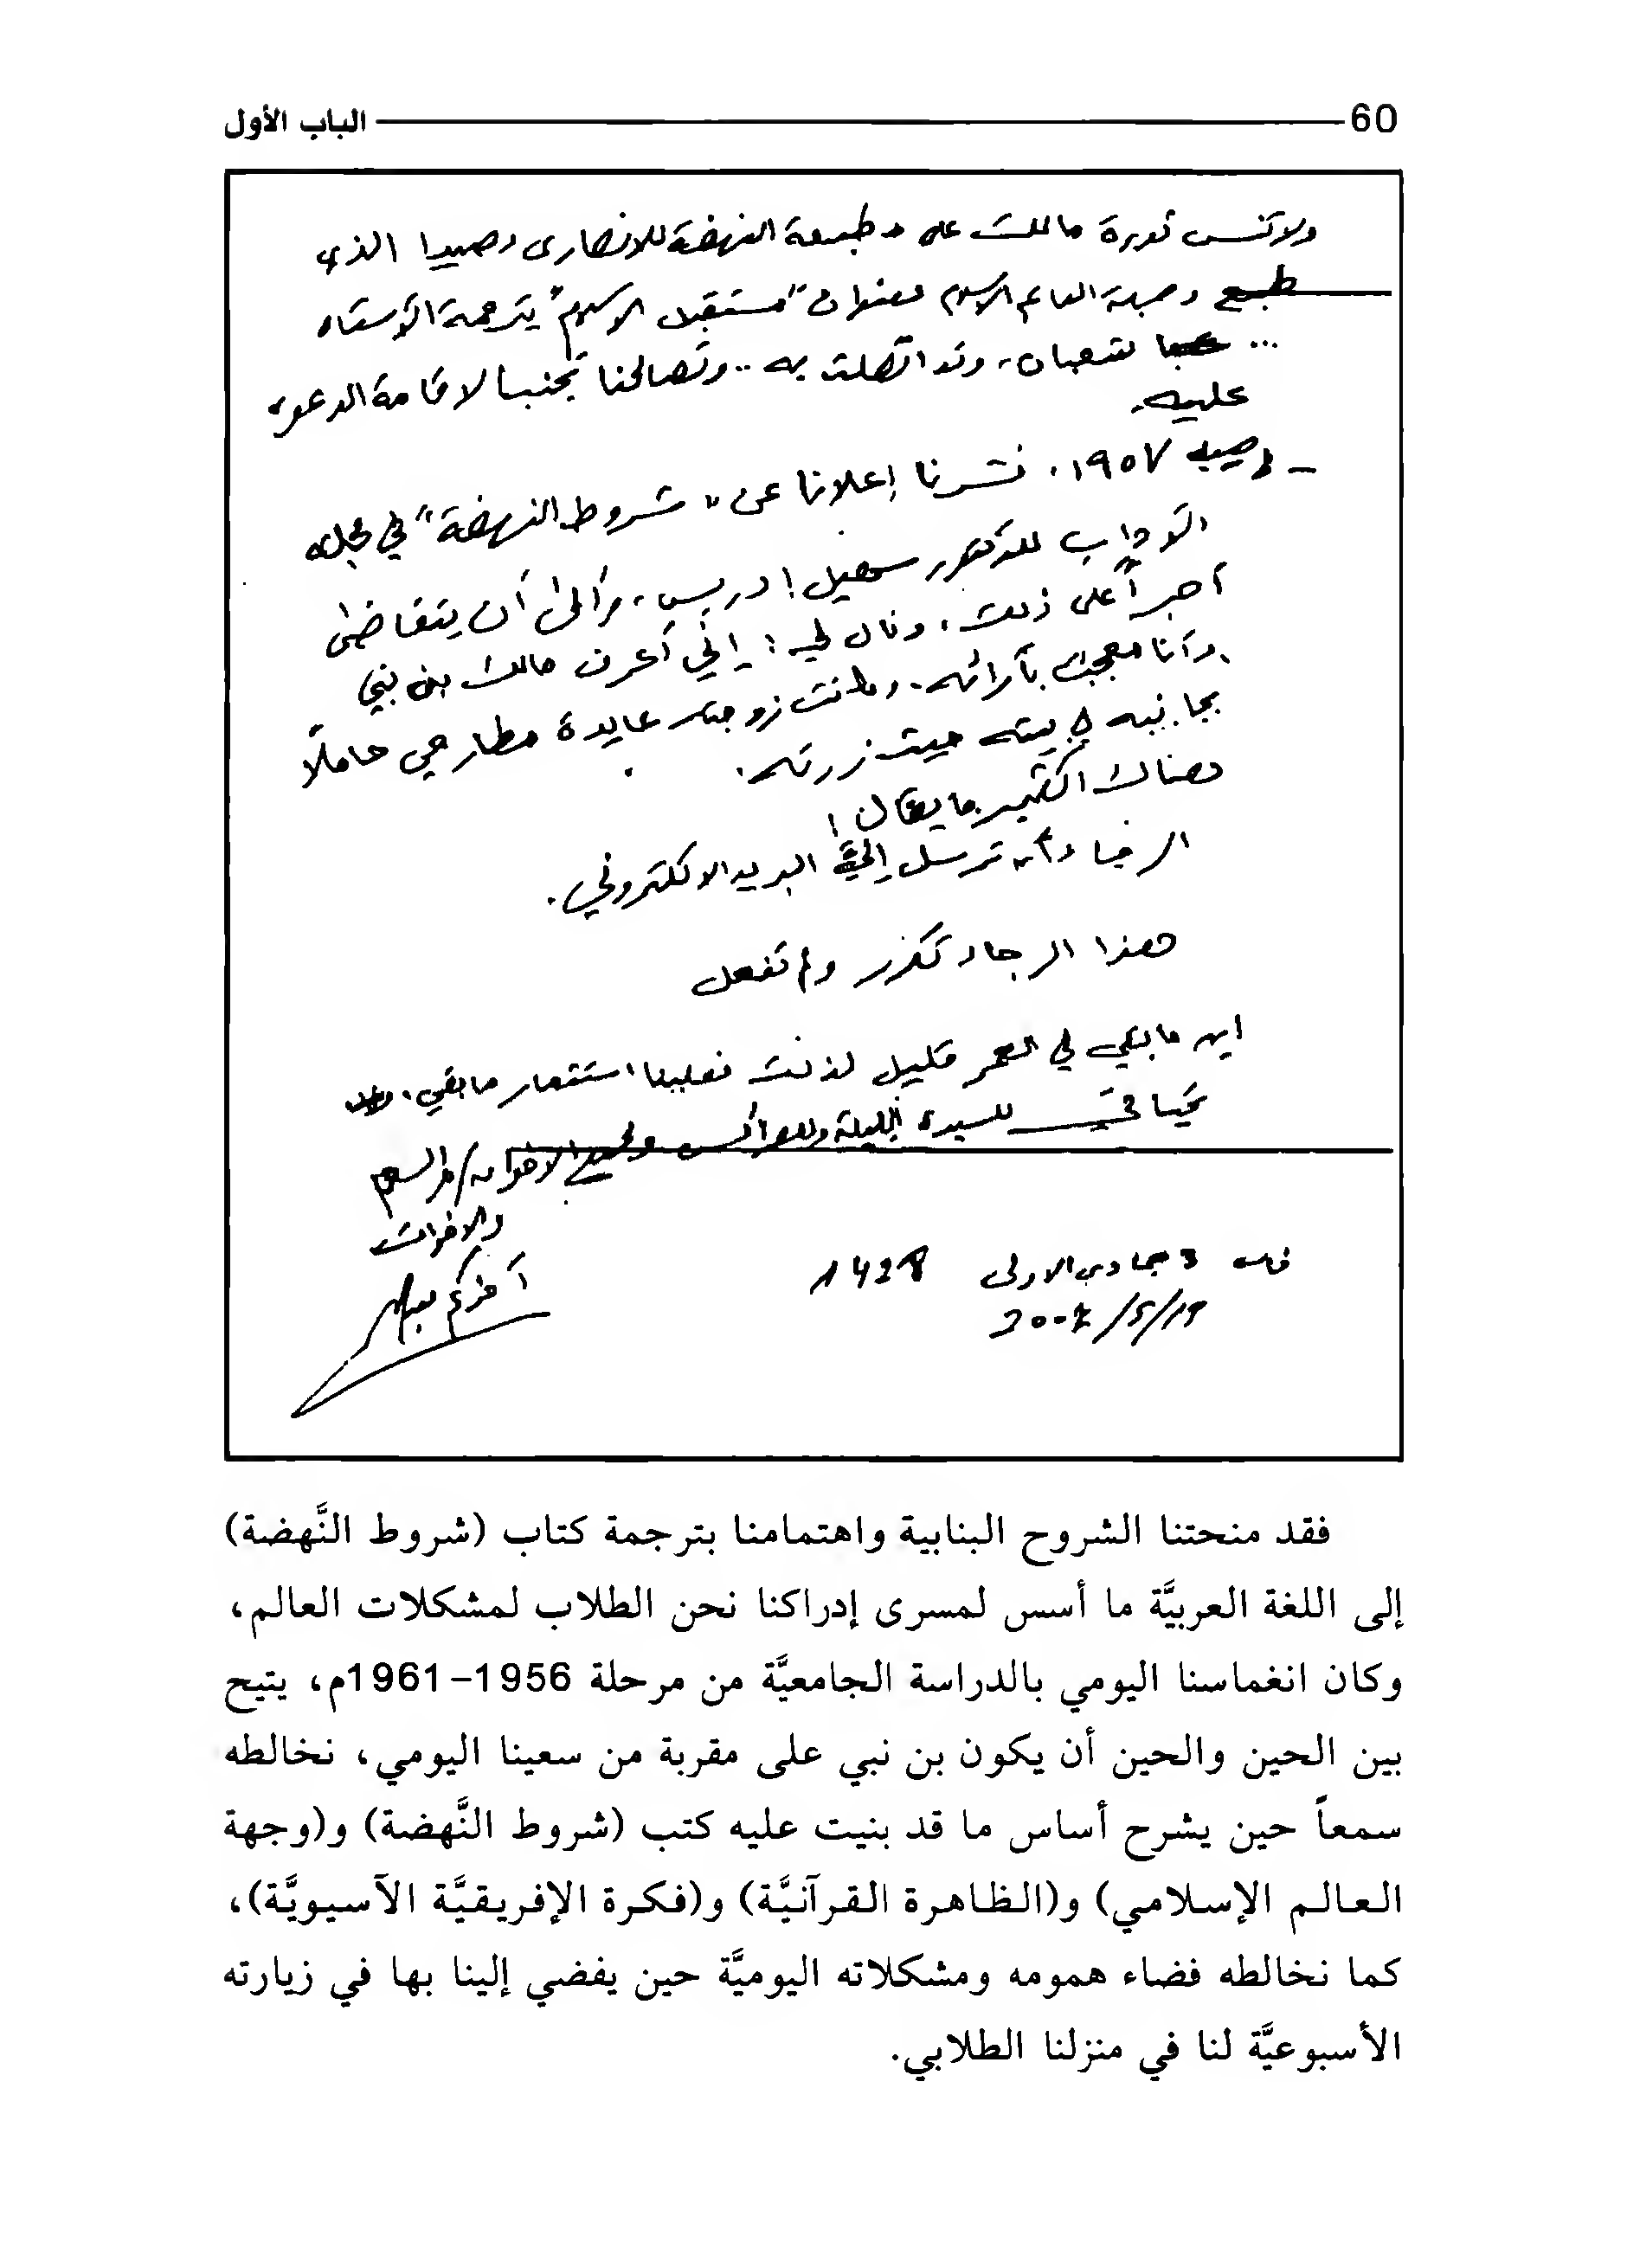 60 الباب الأول
ولا تنس ثورة مالك على مطبعة النهضة للأنصاري وصيدا الذي
طبع وجهة العالم الإسلامي بعنوان "مستقبل الإسلام" بترجمة الأستاذ
... شعبان، وقد اتصلت به .. وتصالحنا تجنبا لإقامة الدعوى
عليه.
- ١٩٥٧، نشرنا إعلانا عن "شروط النهضة" في مجلة
الآداب للدكتور سهيل إدريس، أن يتقاضى
أجراً على ذلك، وقال لي: إني أعرف مالك بن نبي
وأنا معجب بآرائه. وكانت زوجته عايدة مطارجي
بجانبه في بيته حيث زرته.
وهناك الكثير مما يقال!
الرجاء أن ترسل إليّ البريد الالكتروني.
هذا الرجاء تكرر ولم تفعل
إن ما بقي في العمر قليل لذلك فعلينا استثمار ما بقي.
تحياتي للسيدة الجليلة ولجميع الاخوان
والاخوات
3 جمادى الاولى 1428
فقد منحتنا الشروح البنابية واهتمامنا بترجمة كتاب (شروط النَّهضة)
إلى اللغة العربيَّة ما أسس لمسرى إدراكنا نحن الطلاب لمشكلات العالم،
وكان انغماسنا اليومي بالدراسة الجامعيَّة من مرحلة 1956-1961م، يتيح
بين الحين والحين أن يكون بن نبي على مقربة من سعينا اليومي، نخالطه
سمعاً حين يشرح أساس ما قد بنيت عليه كتب (شروط النَّهضة) و(وجهة
العالم الإسلامي) و(الظاهرة القرآنيَّة) و(فكرة الإفريقيَّة الآسيويَّة)،
كما نخالطه فضاء همومه ومشكلاته اليوميَّة حين يفضي إلينا بها في زيارته
الأسبوعيَّة لنا في منزلنا الطلابي.